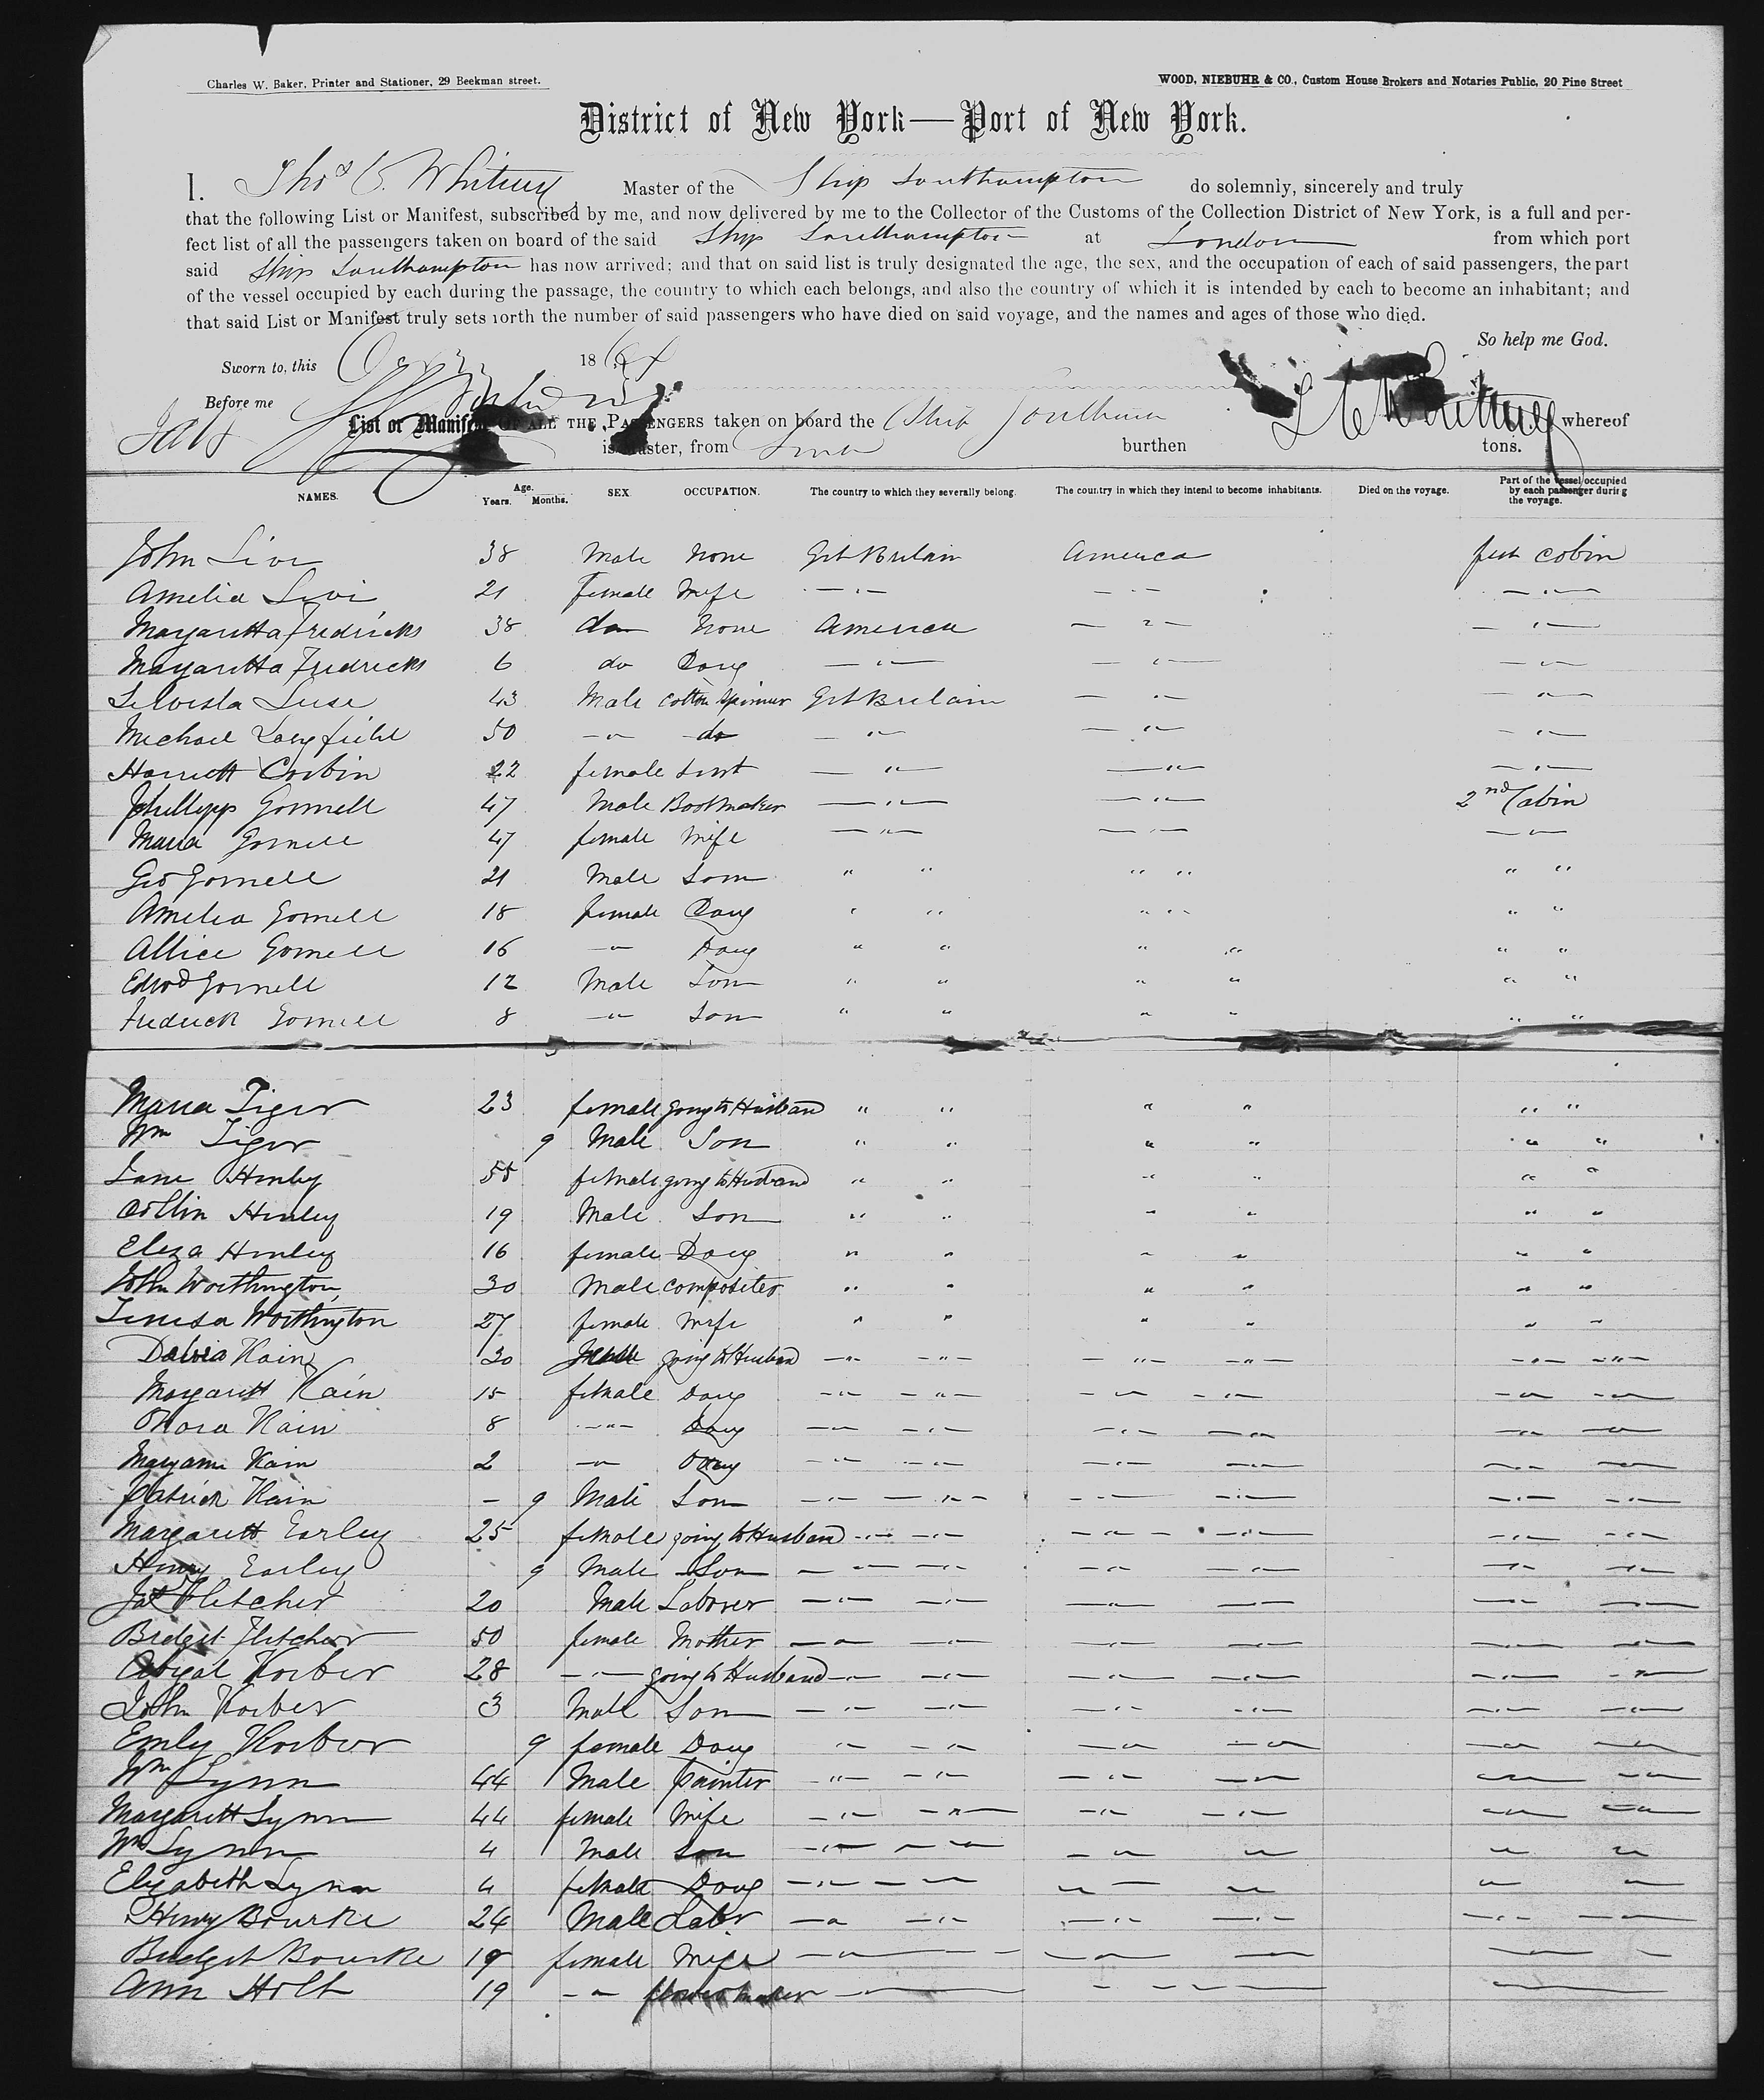 Charles W. Baker, Printer and Stationer, 29 Beekman street.
WOOD, NIEBUHR & CO., Custom House Brokers and Notaries Public, 20 Pine Street
District of New York—Port of New York.
I. Thos C. Whitney Master of the Ship Southampton do solemnly, sincerely and truly
that the following List or Manifest, subscribed by me, and now delivered by me to the Collector of the Customs of the Collection District of New York, is a full and per-
fect list of all the passengers taken on board of the said Ship Southampton at London from which port
said Ship Southampton has now arrived; and that on said list is truly designated the age, the sex, and the occupation of each of said passengers, the part
of the vessel occupied by each during the passage, the country to which each belongs, and also the country of which it is intended by each to become an inhabitant; and
that said List or Manifest truly sets forth the number of said passengers who have died on said voyage, and the names and ages of those who died.
So help me God.
Sworn to, this 1864
Before me
List or Manifest OF ALL THE PASSENGERS taken on board the Ship whereof
is Master, from burthen tons.
NAMES. Age. Years. Months. SEX. OCCUPATION. The country to which they severally belong. The country in which they intend to become inhabitants. Died on the voyage. Part of the vessel occupied by each passenger during the voyage.
John 38 Male None Gt Britain America cabin
Amelia 21 female Wife
Margaretta Fredricks 38 do None America
Margaretta Fredricks 6 do Daug
43 Male Cotton Spinner Gt Britain
Michael Langfield 50 do
Harriett Corbin 22 female
Phillipp Gornell 47 Male Bootmaker 2nd Cabin
Maria Gornell 47 female Wife
Geo Gornell 21 Male Son " " " " " "
Amelia Gornell 18 female Daug " " " " " "
Allice Gornell 16 Daug " " " " " "
Edwd Gornell 12 Male Son " " " " " "
Fredrick Gornell 8 Son " " " " " "
Maria Tiger 23 female going to Husband " " " " " "
Wm Tiger 9 Male Son " " " " " "
Jane Henley 55 female going to Husband " " " " " "
Collin Henley 19 Male Son " " " " " "
Eliza Henley 16 female Daug " " " " " "
John Worthington 30 Male compositer " " " " " "
Worthington 27 female Wife " " " " " "
Kain 30 going to Husband
Margarett Kain 15 female Daug
Kain 8 Daug
Maryann Kain 2 Daug
Patrick Kain – 9 Male Son
Margarett Earley 25 female going to Husband
Henry Earley 9 Male Son
Fletcher 20 Male Laborer
Bridget Fletcher 50 female Mother
Abigal Korber 28 going to Husband
John Korber 3 Male Son
Emly Korber 9 female Daug
Wm Lynn 44 Male Painter
Margarett Lynn 44 female Wife
Wm Lynn 4 Male Son
Elizabeth Lynn 4 female Daug
Henry Bourke 24 Male Labr
Bridget Bourke 19 female Wife
Ann Holt 19 flower maker